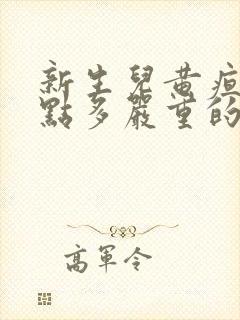 新生兒黄疸
點多嚴重的
高軍令